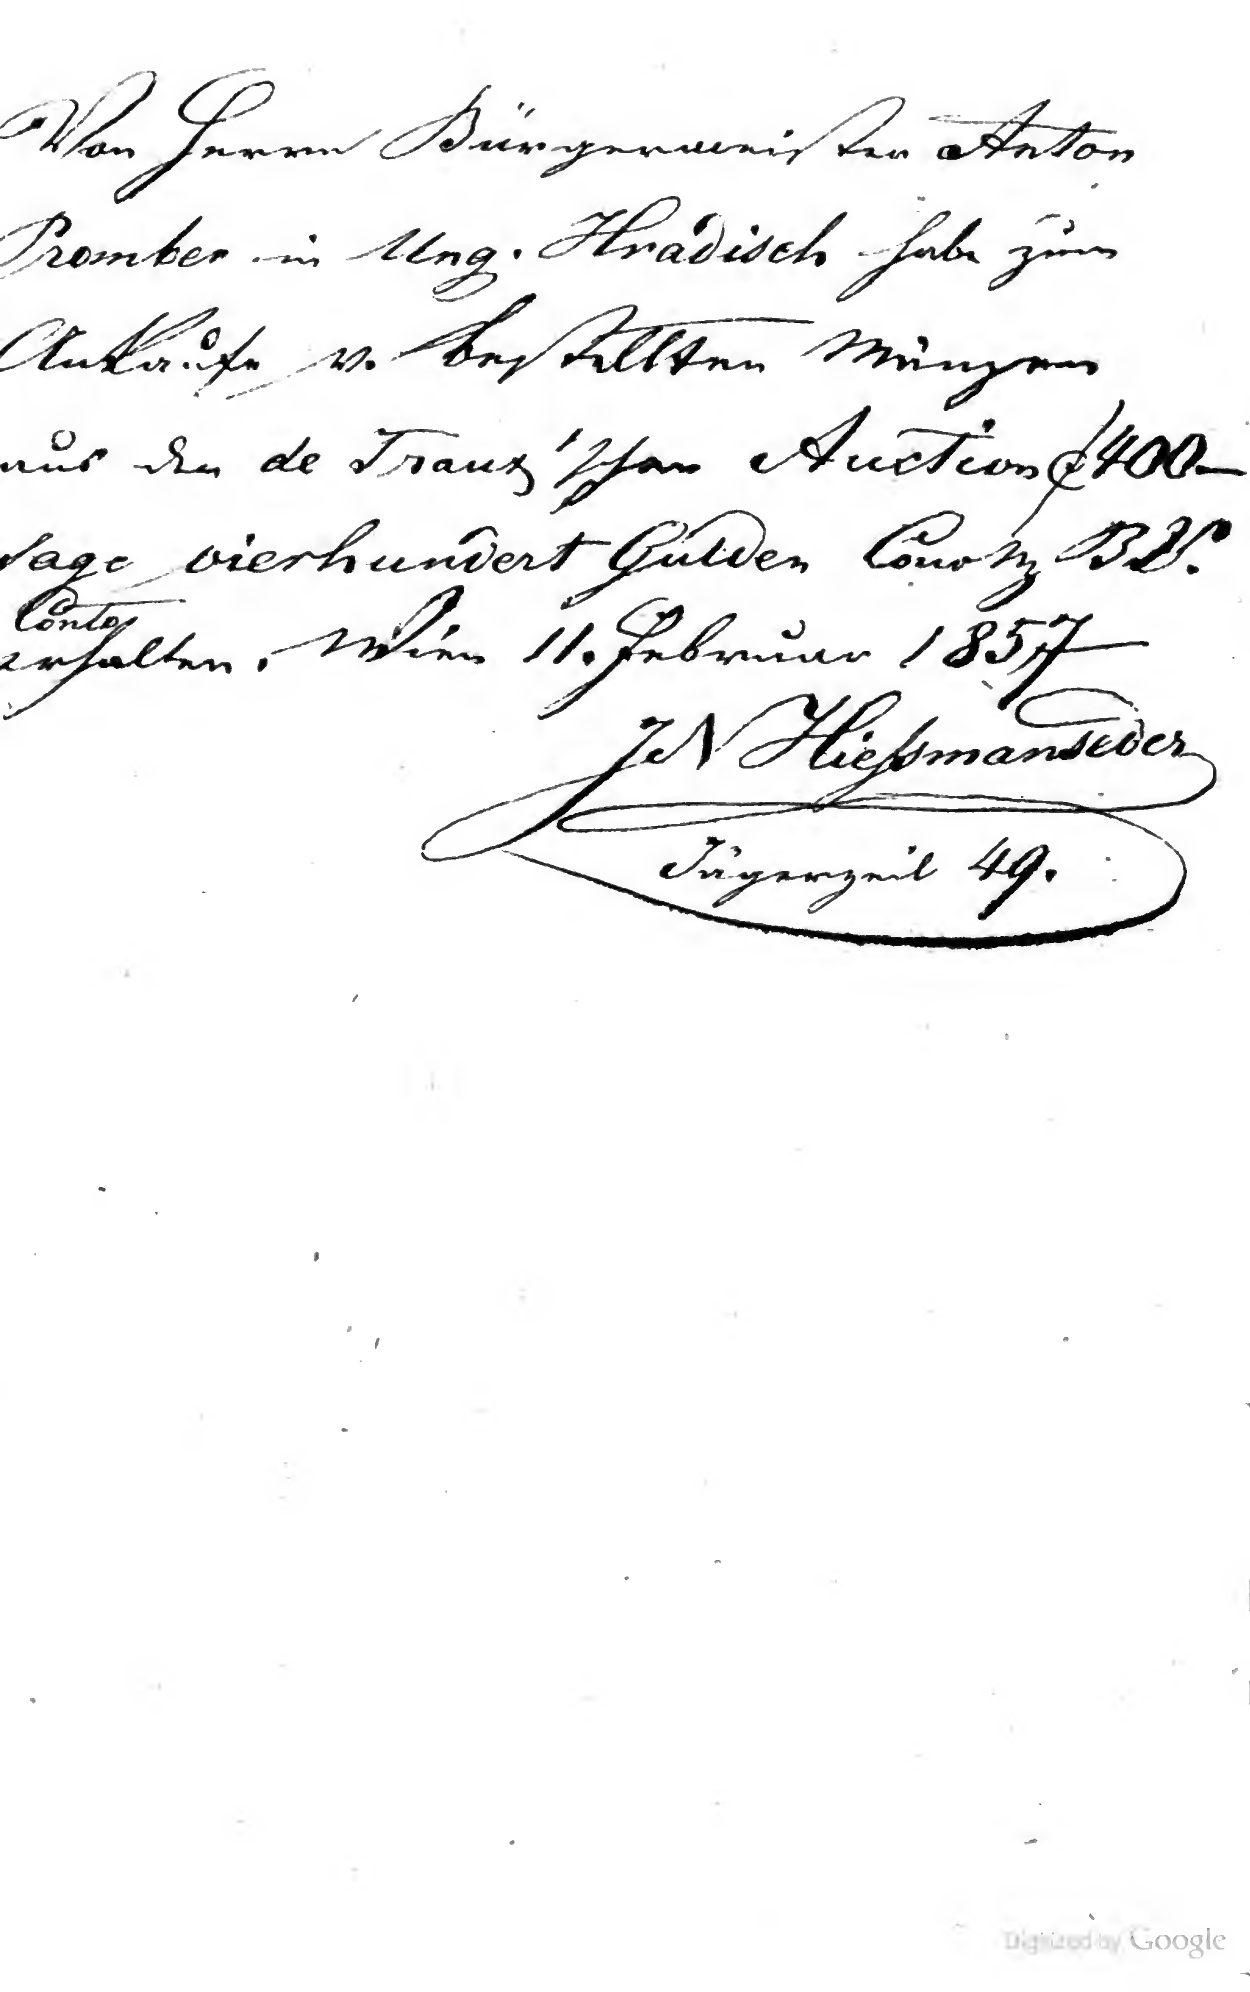 Von Herrn Bürgermeister Anton
Promber in Ung. Hradisch habe zum
Ankaufe v. bestellten Münzen
aus der de Traux'schen Auction f 400–
sage vierhundert Gulden
Conto
erhalten. Wien 11. Februar 1857
JN Hießmanseder
Jägerzeil 49.
Digitized by Google